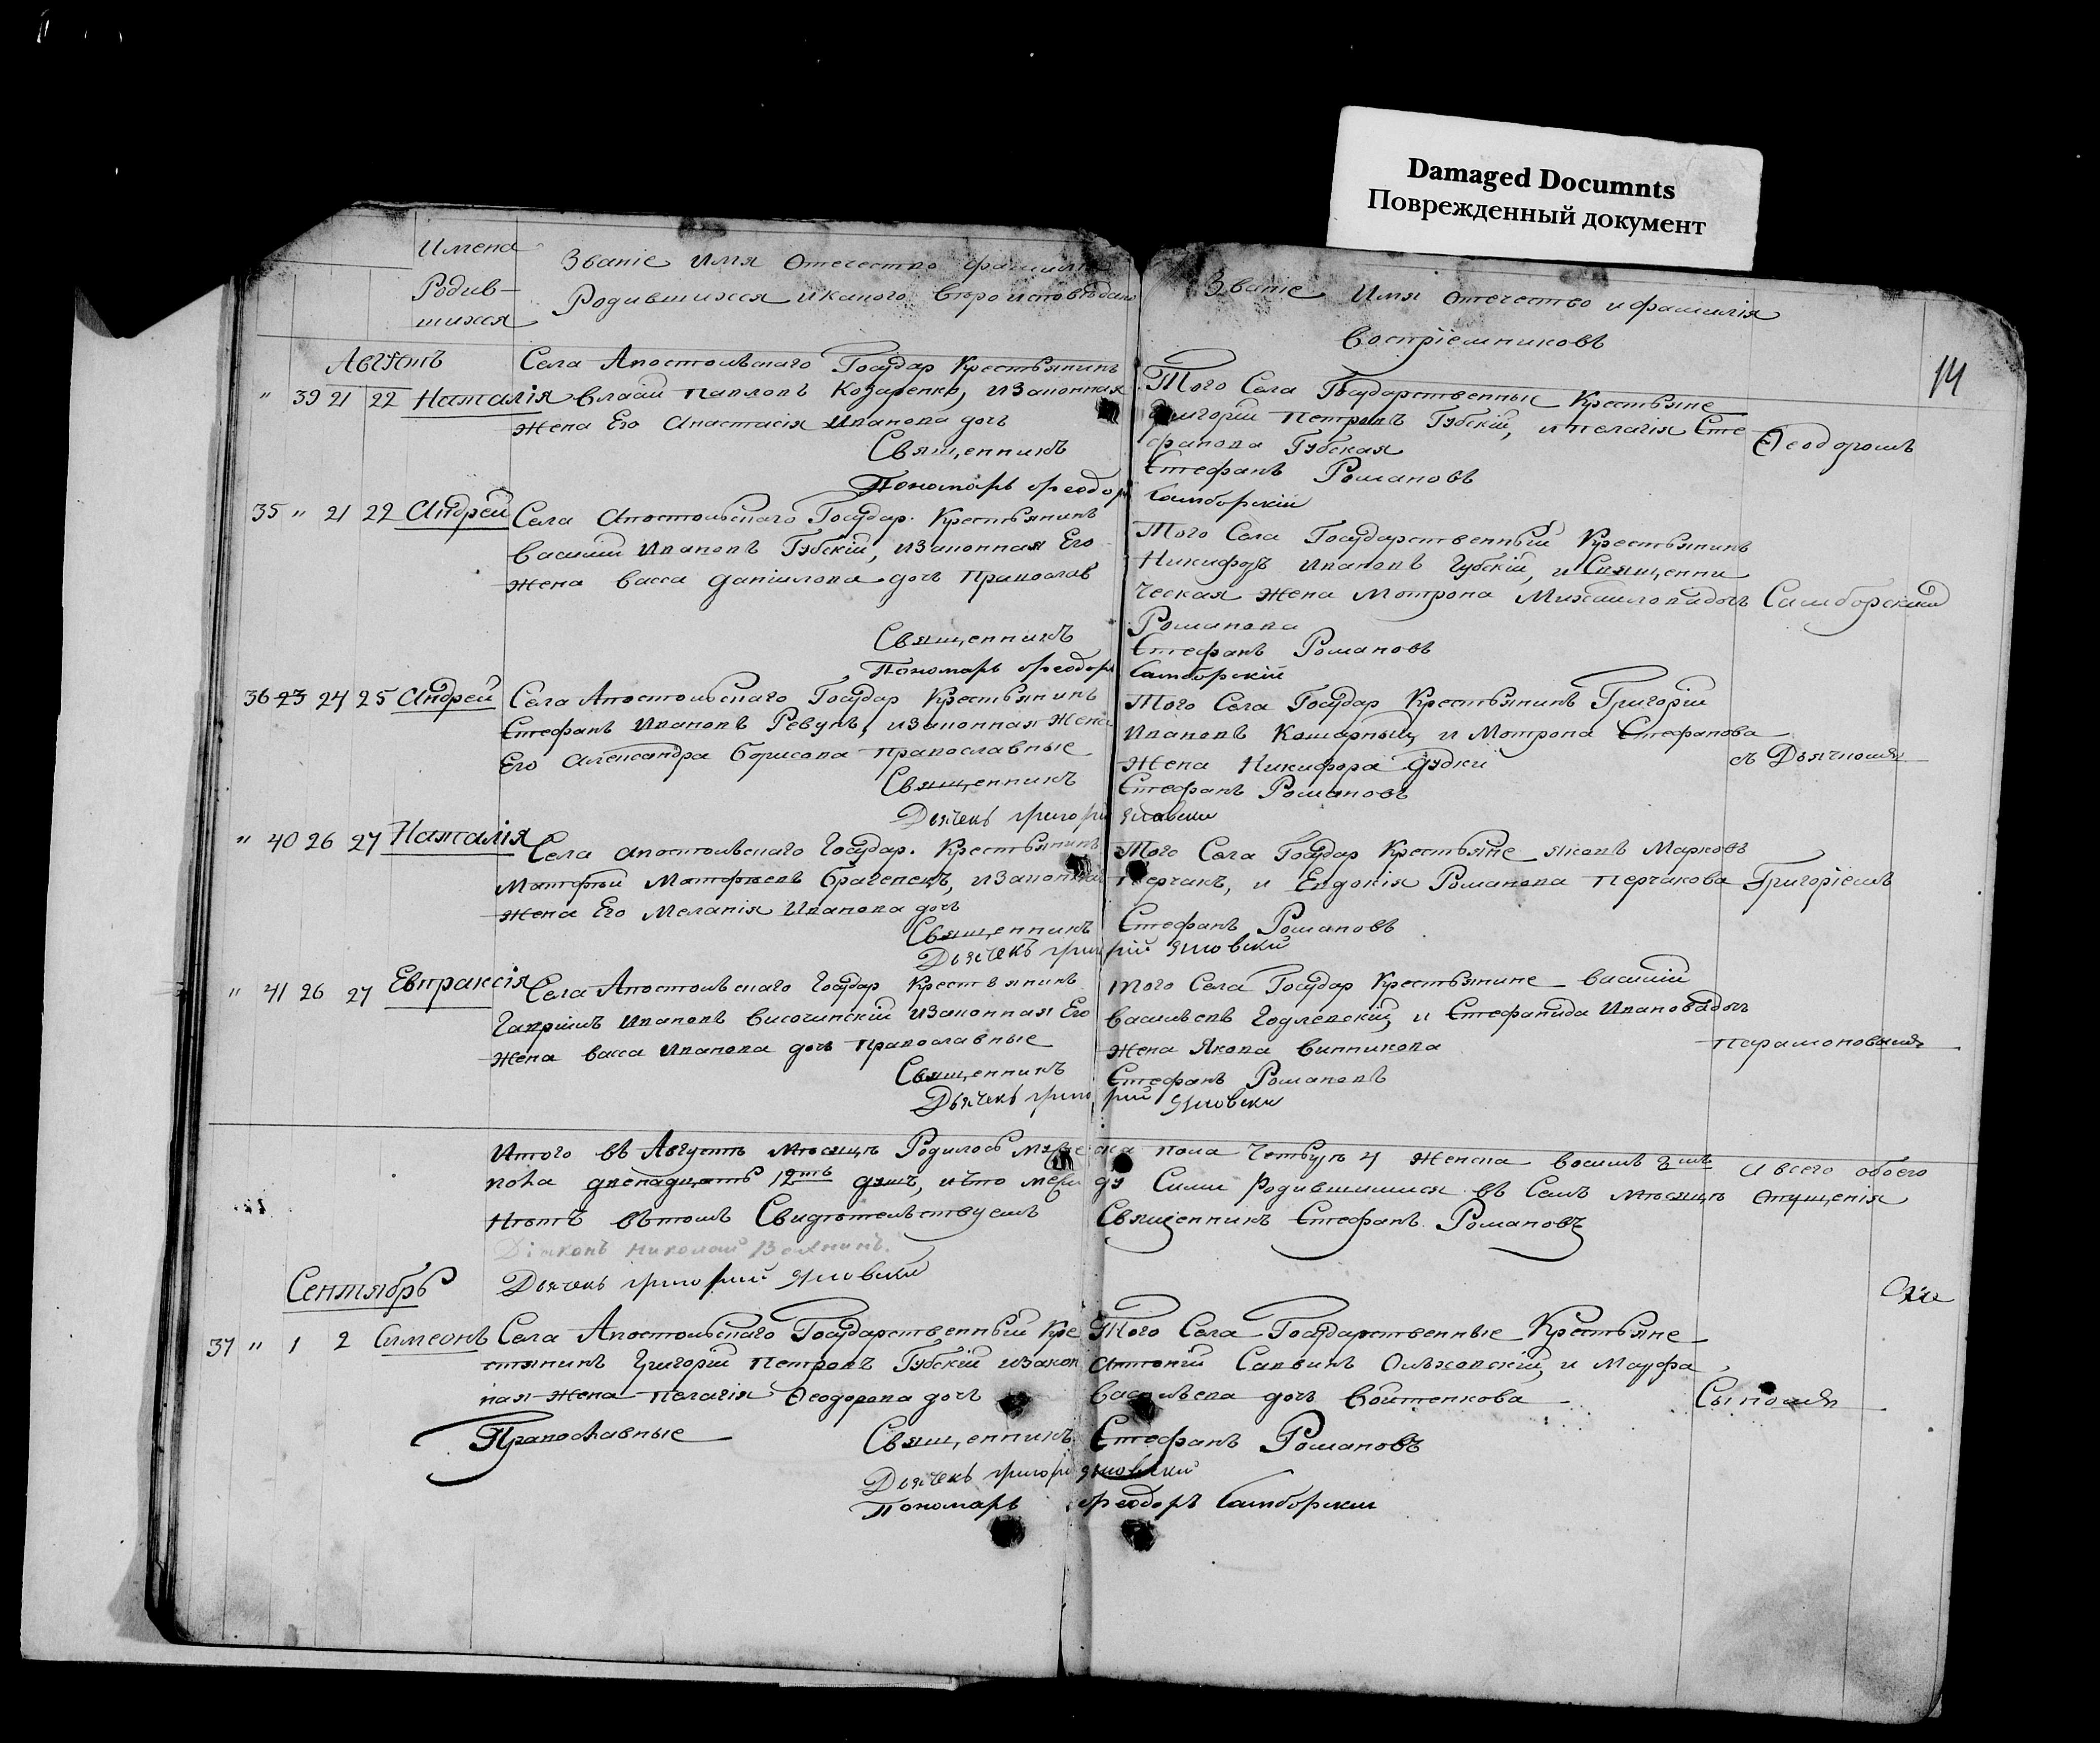 Damaged Documnts
Поврежденный документ
Имена
Родив-
шихся
Званіе Имя Отечество фамилія
Родившихся и какого вероисповѣдан
Званіе Имя Отечество и фамилія
Воспріемниковъ
14
Августъ
Села Апостольскаго Государ Крестьянинъ
" 39 21 22 Наталія Власій Павловъ Козаренко, и законная
Жена Его Анастасія Иванова дочь
Священникъ
Пономарь Феодоръ
Того Села Государственные Крестьяне
Григорій Петровъ Губскій, и Пелагія Сте
фанова Губская
Феодоромъ
Стефанъ Романовъ
Самборскій
35 " 21 22 Андрей Села Апостольскаго Государ. Крестьянинъ
Василій Ивановъ Губскій, и законная Его
Жена Васса Даніилова дочь Православ
Священникъ
Пономарь Феодоръ
Того Села Государственный Крестьянинъ
Никифоръ Ивановъ Губскій, и Священни
ческая Жена Мотрона Михаилова дочь Самборскимъ
Романова
Стефанъ Романовъ
Самборскій
36 23 24 25 Андрей Села Апостольскаго Государ Крестьянинъ
Стефанъ Ивановъ Ревунъ, и законная Жена
Его Александра Борисова Православные
Священникъ
Дьячекъ Григорій
Того Села Государ Крестьянинъ Григорій
Ивановъ Кошарный, и Мотрона Стефанова
Жена Никифора Дудки
съ Дьячкомъ
Стефанъ Романовъ
" 40 26 27 Наталія
Села Апостольскаго Государ. Крестьянинъ
Матфей Матфеевъ, и законная
Жена Его Меланія Иванова дочь
Священникъ
Дьячекъ Григо
Того Села Государ Крестьяне Яковъ Марковъ
Перчакъ, и Евдокія Романова Перчакова Григоріемъ
Стефанъ Романовъ
рій
" 41 26 27 Евпраксія
Села Апостольскаго Государ Крестьянинъ
Гавріилъ Ивановъ Височинскій и законная Его
Жена Васса Иванова дочь Православные
Священникъ
Дьячекъ Григо
Того Села Государ Крестьянине Василій
Васильевъ Годлевскій, и Стефанида Иванова дочь
Жена Якова Винникова
Стефанъ Романовъ
рій
Итого въ Августѣ мѣсяцѣ Родилось мужеска пола Четыре 4 женска восемь И всего обоего
пола двенадцать 12ть душъ, и что между Сими Родившимися въ семъ мѣсяцѣ Опущенія
Нѣтъ въ томъ Свидѣтельствуемъ
Священникъ Стефанъ Романовъ
Діаконъ Николай
Дьячекъ Григорій
Сентябрь
37 " 1 2 Симеонъ Села Апостольскаго Государственный Кре
стянинъ Григорій Петровъ Губскій и закон
ная Жена Пелагія Феодорова дочь
Православные
Священникъ
Дьячекъ Григорій
Пономарь
Того Села Государственные Крестьяне
Антоній Саввинъ Ольховскій, и Марфа
Васильева дочь Войтенкова
Сыномъ
Стефанъ Романовъ
Феодоръ Самборскій